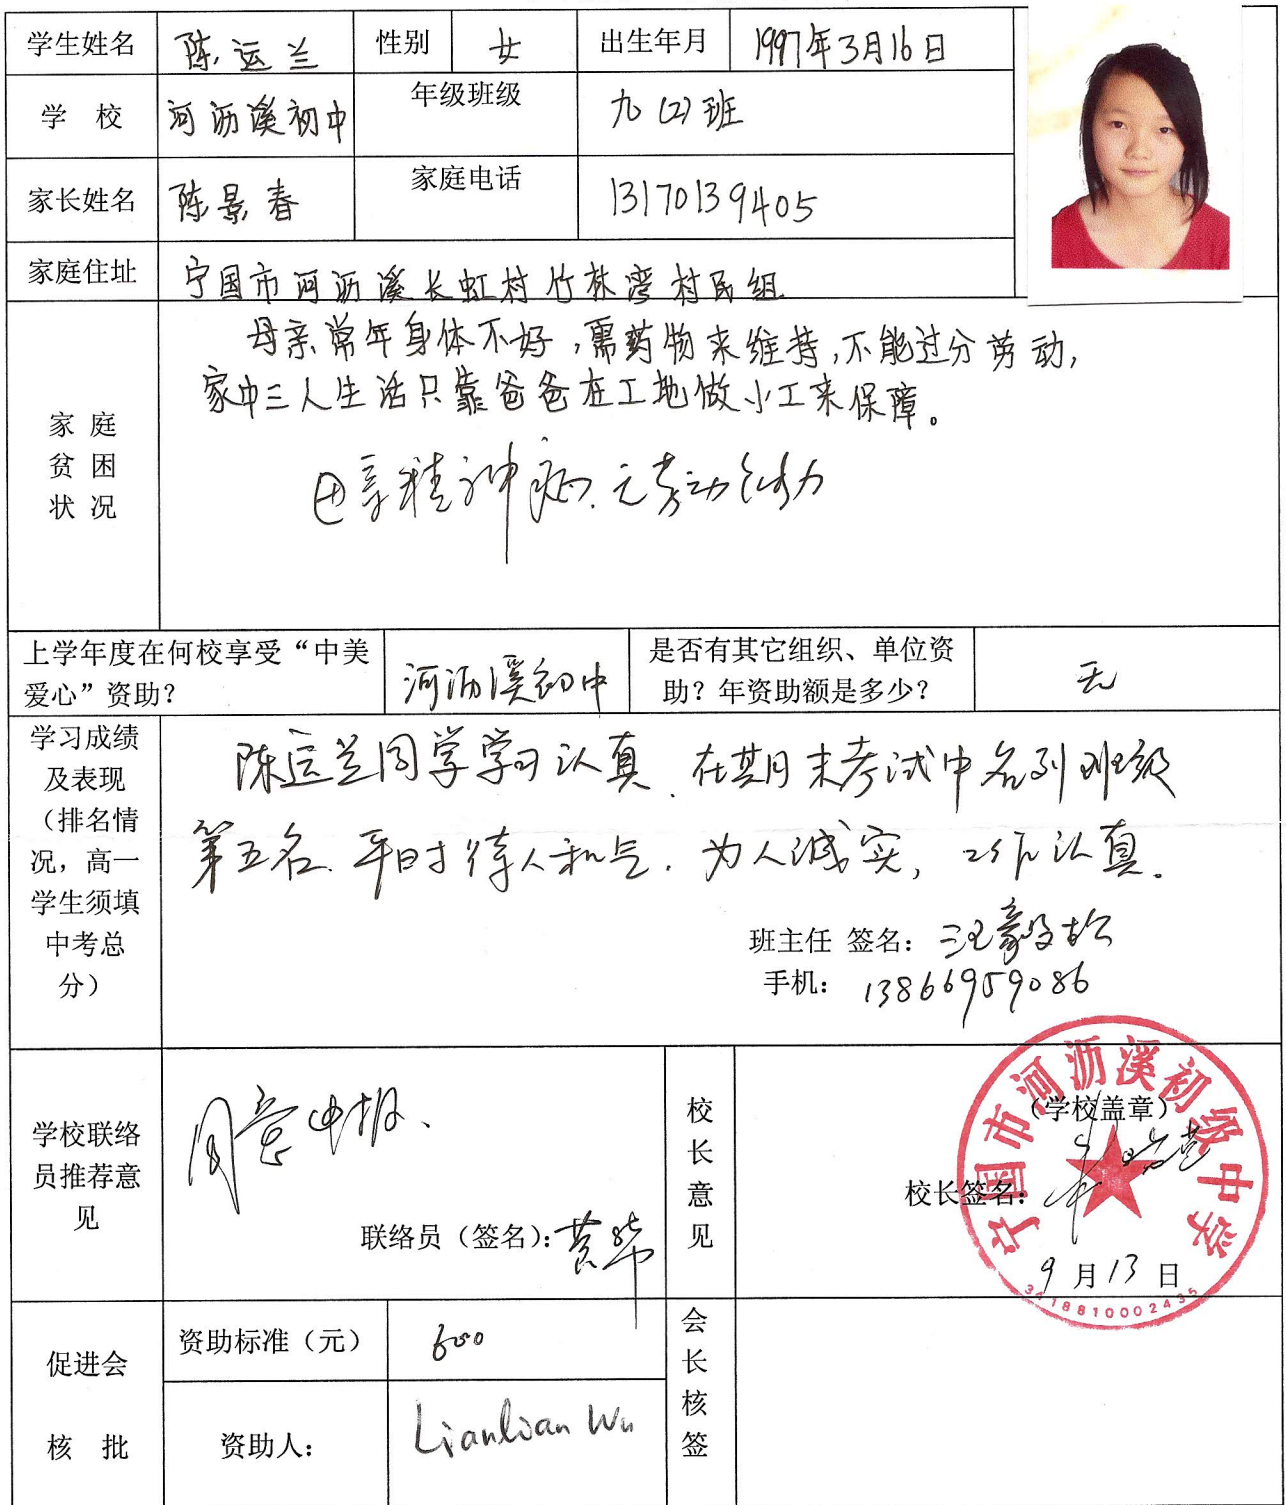 学生姓名 陈运兰 性别 女 出生年月 1997年3月16日
学 校 河沥溪初中 年级班级 九(2)班
家长姓名 陈景春 家庭电话 13170139405
家庭住址 宁国市河沥溪长虹村竹林湾村民组
家庭贫困状况
母亲常年身体不好,需药物来维持,不能过分劳动,
家中三人生活只靠爸爸在工地做小工来保障。
母亲精神病.无劳动能力
上学年度在何校享受“中美
爱心”资助?
河沥溪初中
是否有其它组织、单位资
助?年资助额是多少?
无
学习成绩
及表现
(排名情
况,高一
学生须填
中考总
分)
陈运兰同学学习认真.在期末考试中名列班级
第五名.平时待人和气.为人诚实,工作认真.
班主任 签名:汪
手机: 13866959086
学校联络
员推荐意
见
同意申报、
联络员(签名):黄
校长意见
(学校盖章)
校长签名:
9月13日
宁国市河沥溪初级中学
3418810002435
促进会
核 批
资助标准(元) 600
资助人: Lianlian Wu
会长核签